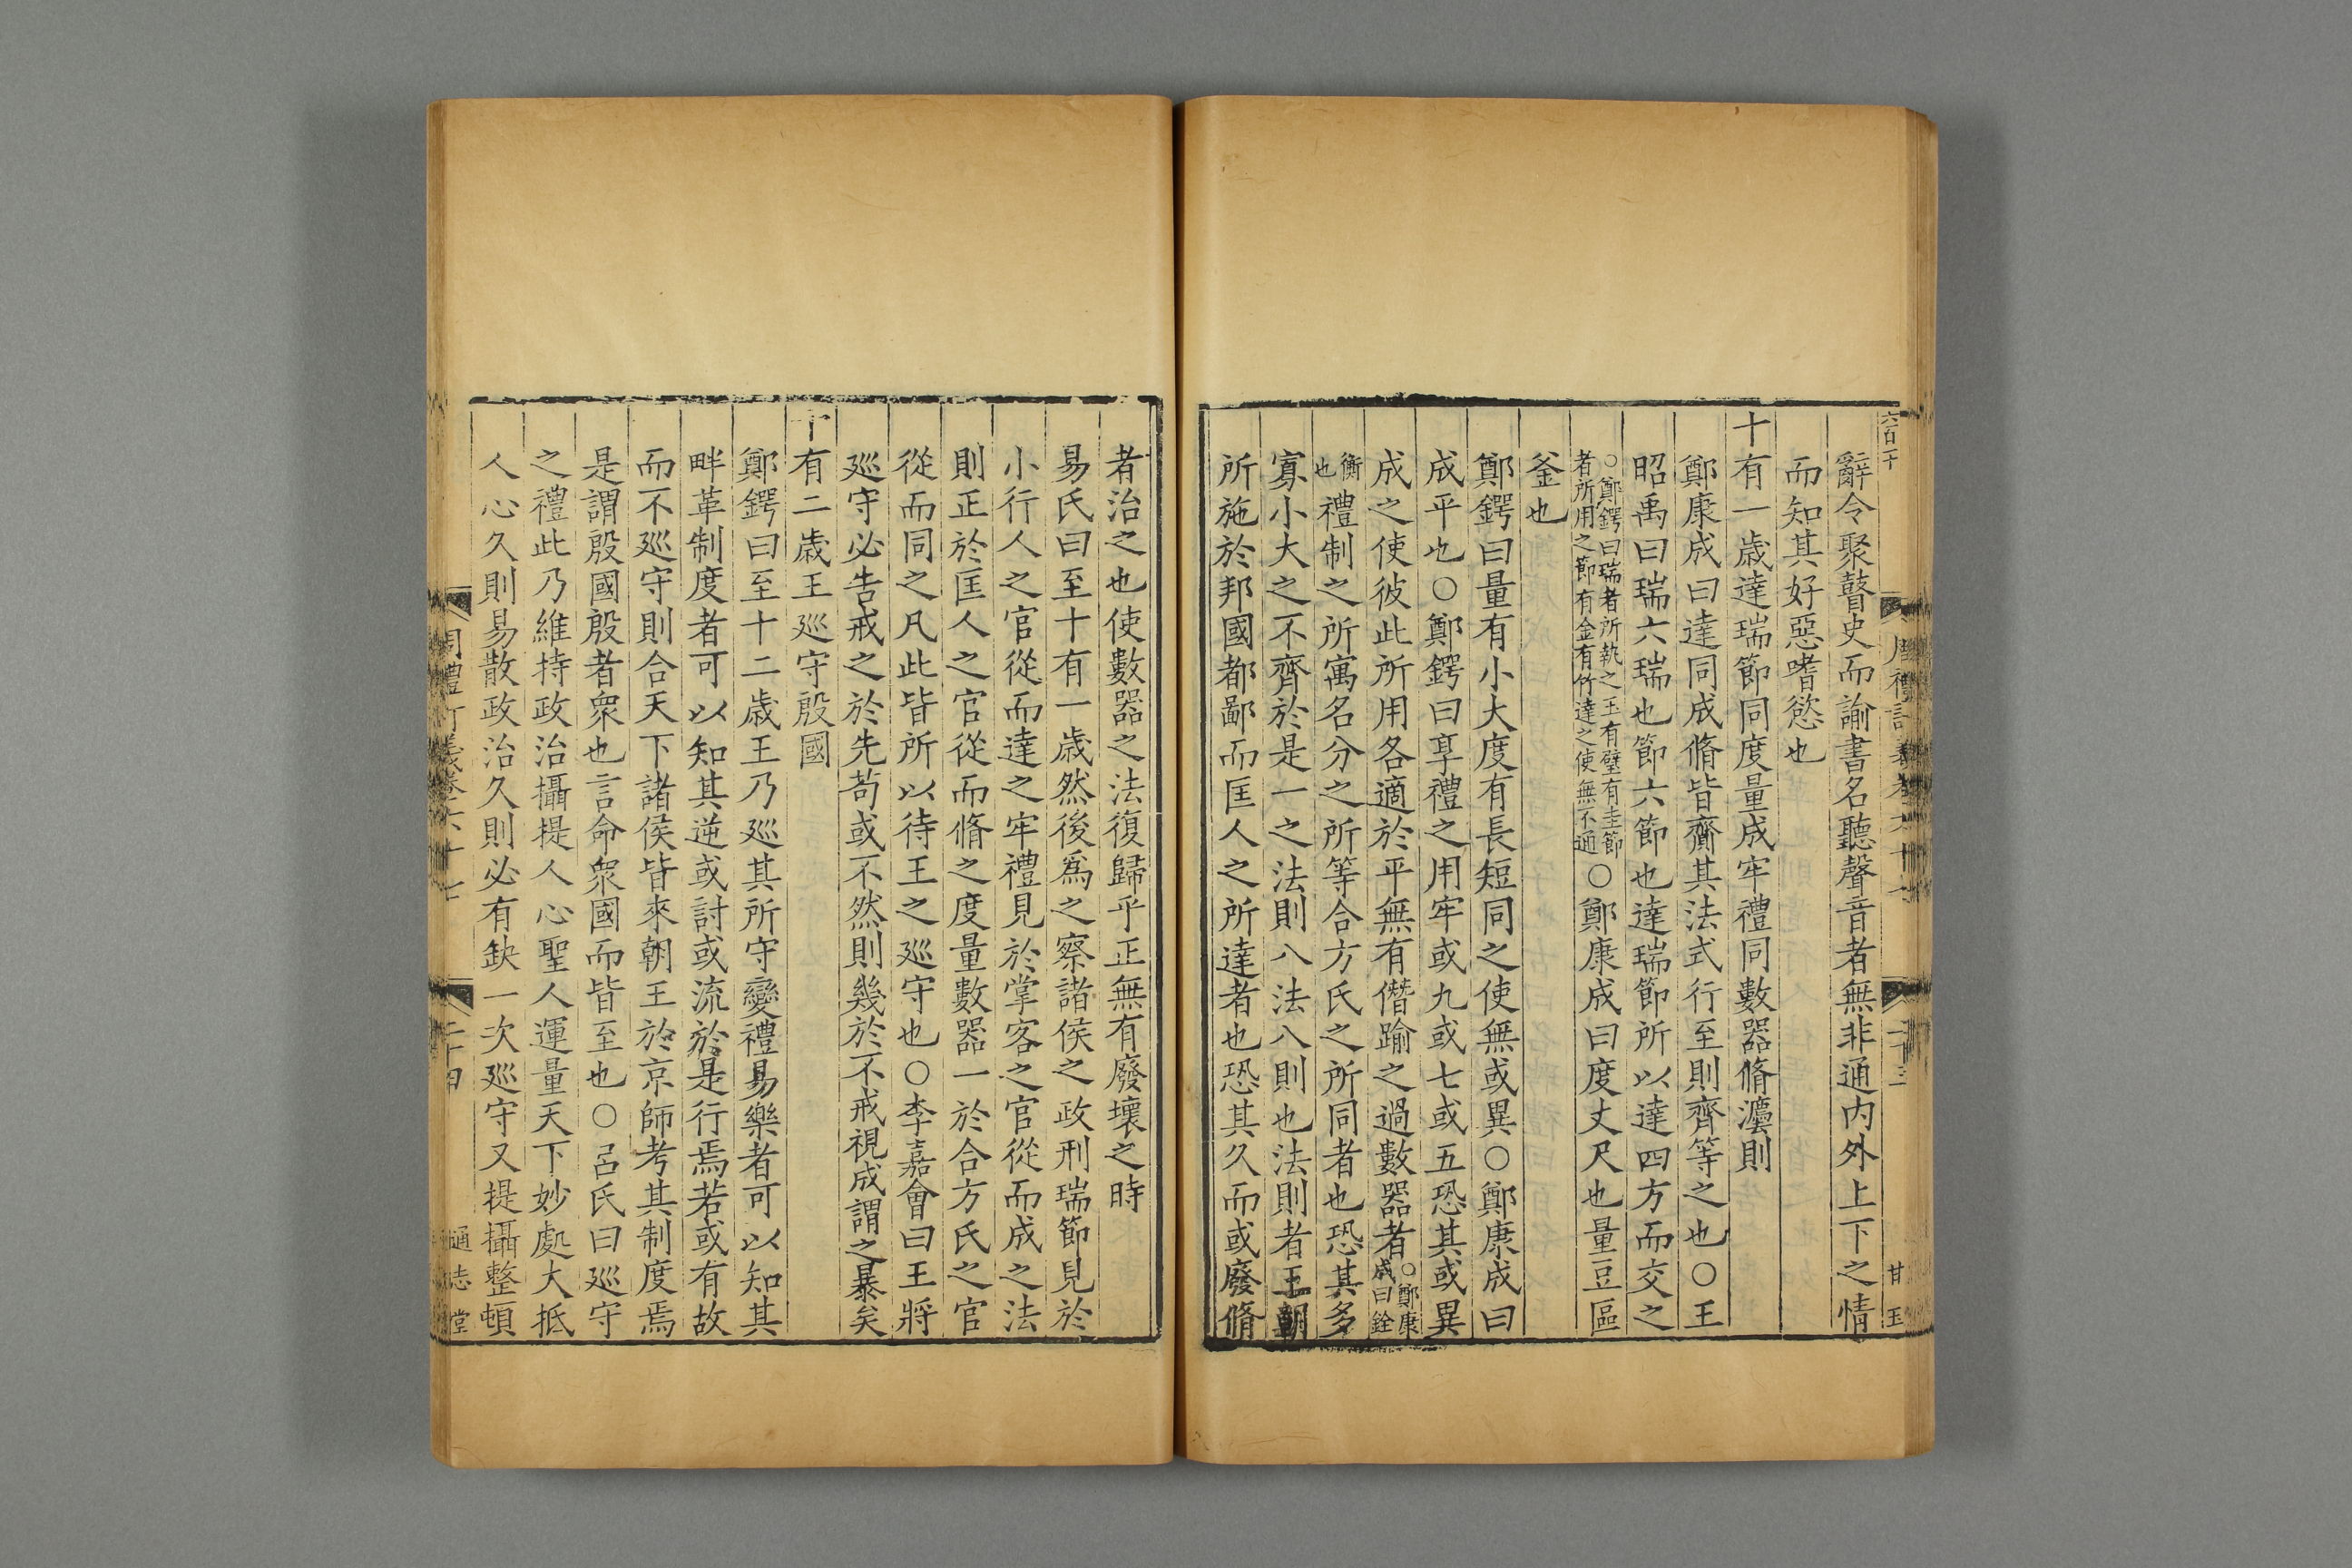 六百二十
辭令聚瞽史而諭書名聽聲音者無非通内外上下之情
而知其好惡嗜慾也
十有一歳達瑞節同度量成牢禮同數器脩灋則
鄭康成曰達同成脩皆齎其法式行至則齊等之也○王
昭禹曰瑞六瑞也節六節也達瑞節所以達四方而交之
○鄭鍔曰瑞者所執之玉有璧有圭節
者所用之節有金有竹達之使無不通
○鄭康成曰度丈尺也量豆區
釜也
鄭鍔曰量有小大度有長短同之使無或異○鄭康成曰
成平也○鄭鍔曰享禮之用牢或九或七或五恐其或異
成之使彼此所用各適於平無有僭踰之過數器者
○鄭康
成曰銓
衡
也
禮制之所寓名分之所等合方氏之所同者也恐其多
寡小大之不齊於是一之法則八法八則也法則者王朝
所施於邦國都鄙而匡人之所達者也恐其久而或廢脩
甘玉
者治之也使數器之法復歸乎正無有廢壞之時
易氏曰至十有一歳然後爲之察諸侯之政刑瑞節見於
小行人之官從而達之牢禮見於掌客之官從而成之法
則正於匡人之官從而脩之度量數器一於合方氏之官
從而同之凡此皆所以待王之廵守也○李嘉會曰王將
廵守必告戒之於先苟或不然則幾於不戒視成謂之暴矣
十有二歳王廵守殷國
鄭鍔曰至十二歳王乃廵其所守變禮易樂者可以知其
畔革制度者可以知其逆或討或流於是行焉若或有故
而不廵守則合天下諸侯皆來朝王於京師考其制度焉
是謂殷國殷者衆也言命衆國而皆至也○呂氏曰廵守
之禮此乃維持政治攝提人心聖人運量天下妙處大抵
人心久則易散政治久則必有缺一次廵守又提攝整頓
周禮訂義卷六十七
二十四
通志堂